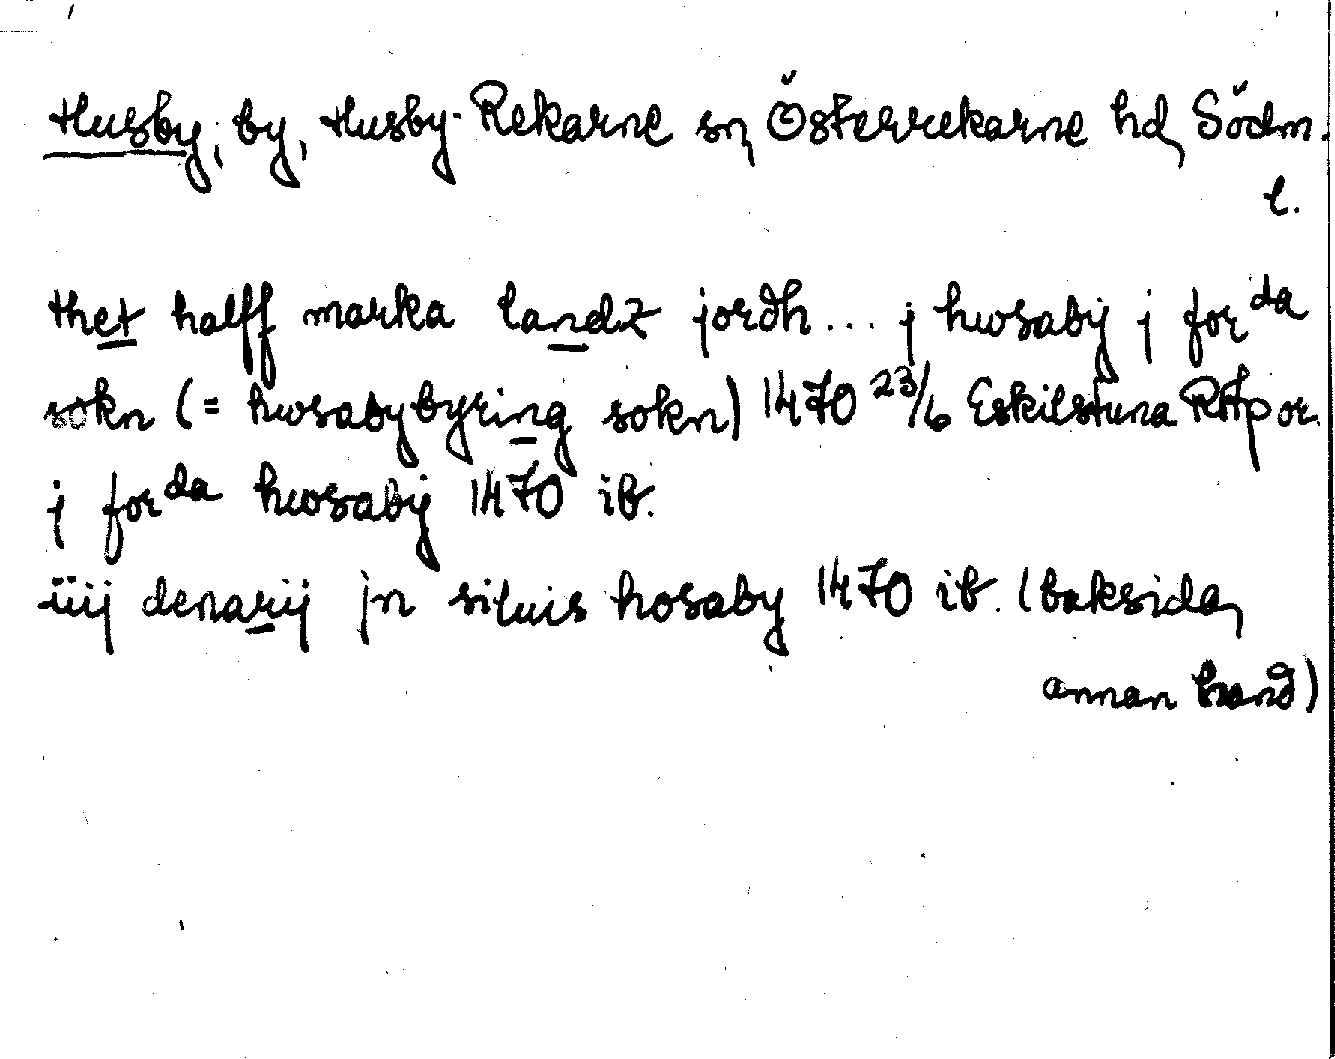 Husby, by, Husby-Rekarne sn, Österrekarne hd, Södm.
l.
thet halff marka landz jordh... j hwsaby j for da
sokn (= hwsabybyring sokn) 1470 23/6 Eskilstuna RAp or.
j for da hwsabÿ 1470 ib.
iiij denarij jn siluis hosaby 1470 ib. (baksida,
annan hand)